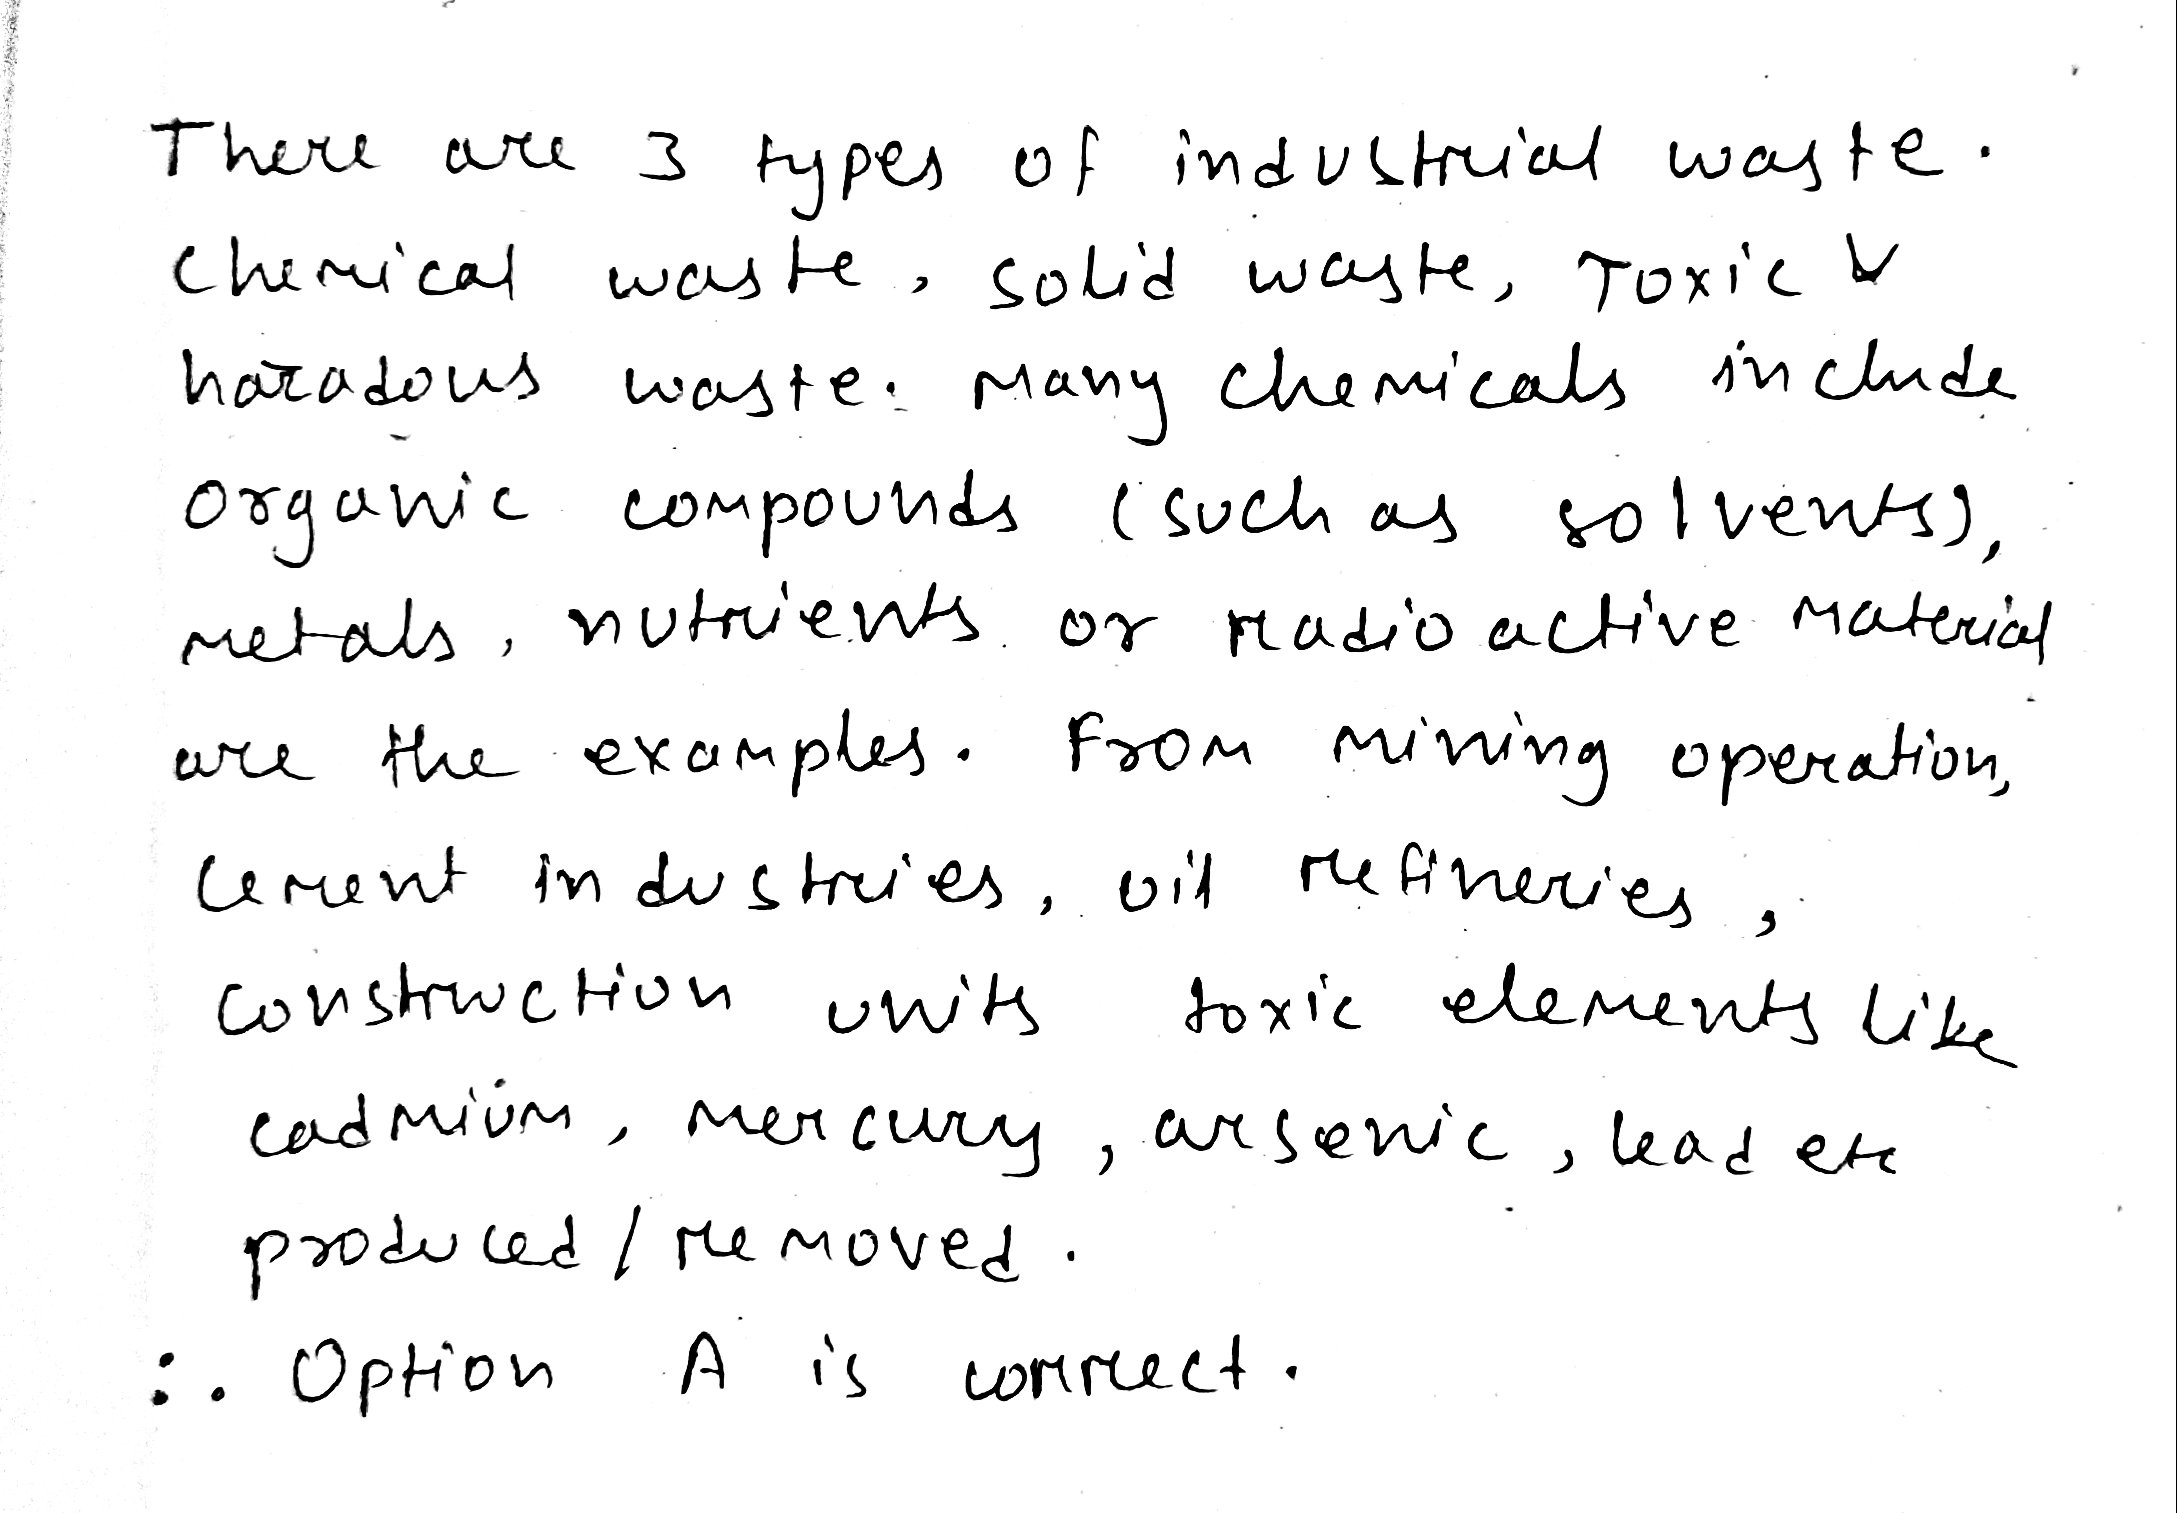 There are 3 types of industrial waste.
Chemical waste, solid waste, Toxic &
hazadous waste. Many chemicals include
organic compounds (such as solvents),
metals, nutrients or radio active material
are the examples. From mining operation,
cement industries, oil refineries,
construction units toxic elements like
cadmium, mercury, arsenic, lead etc
produced / removed.
∴ Option A is correct.